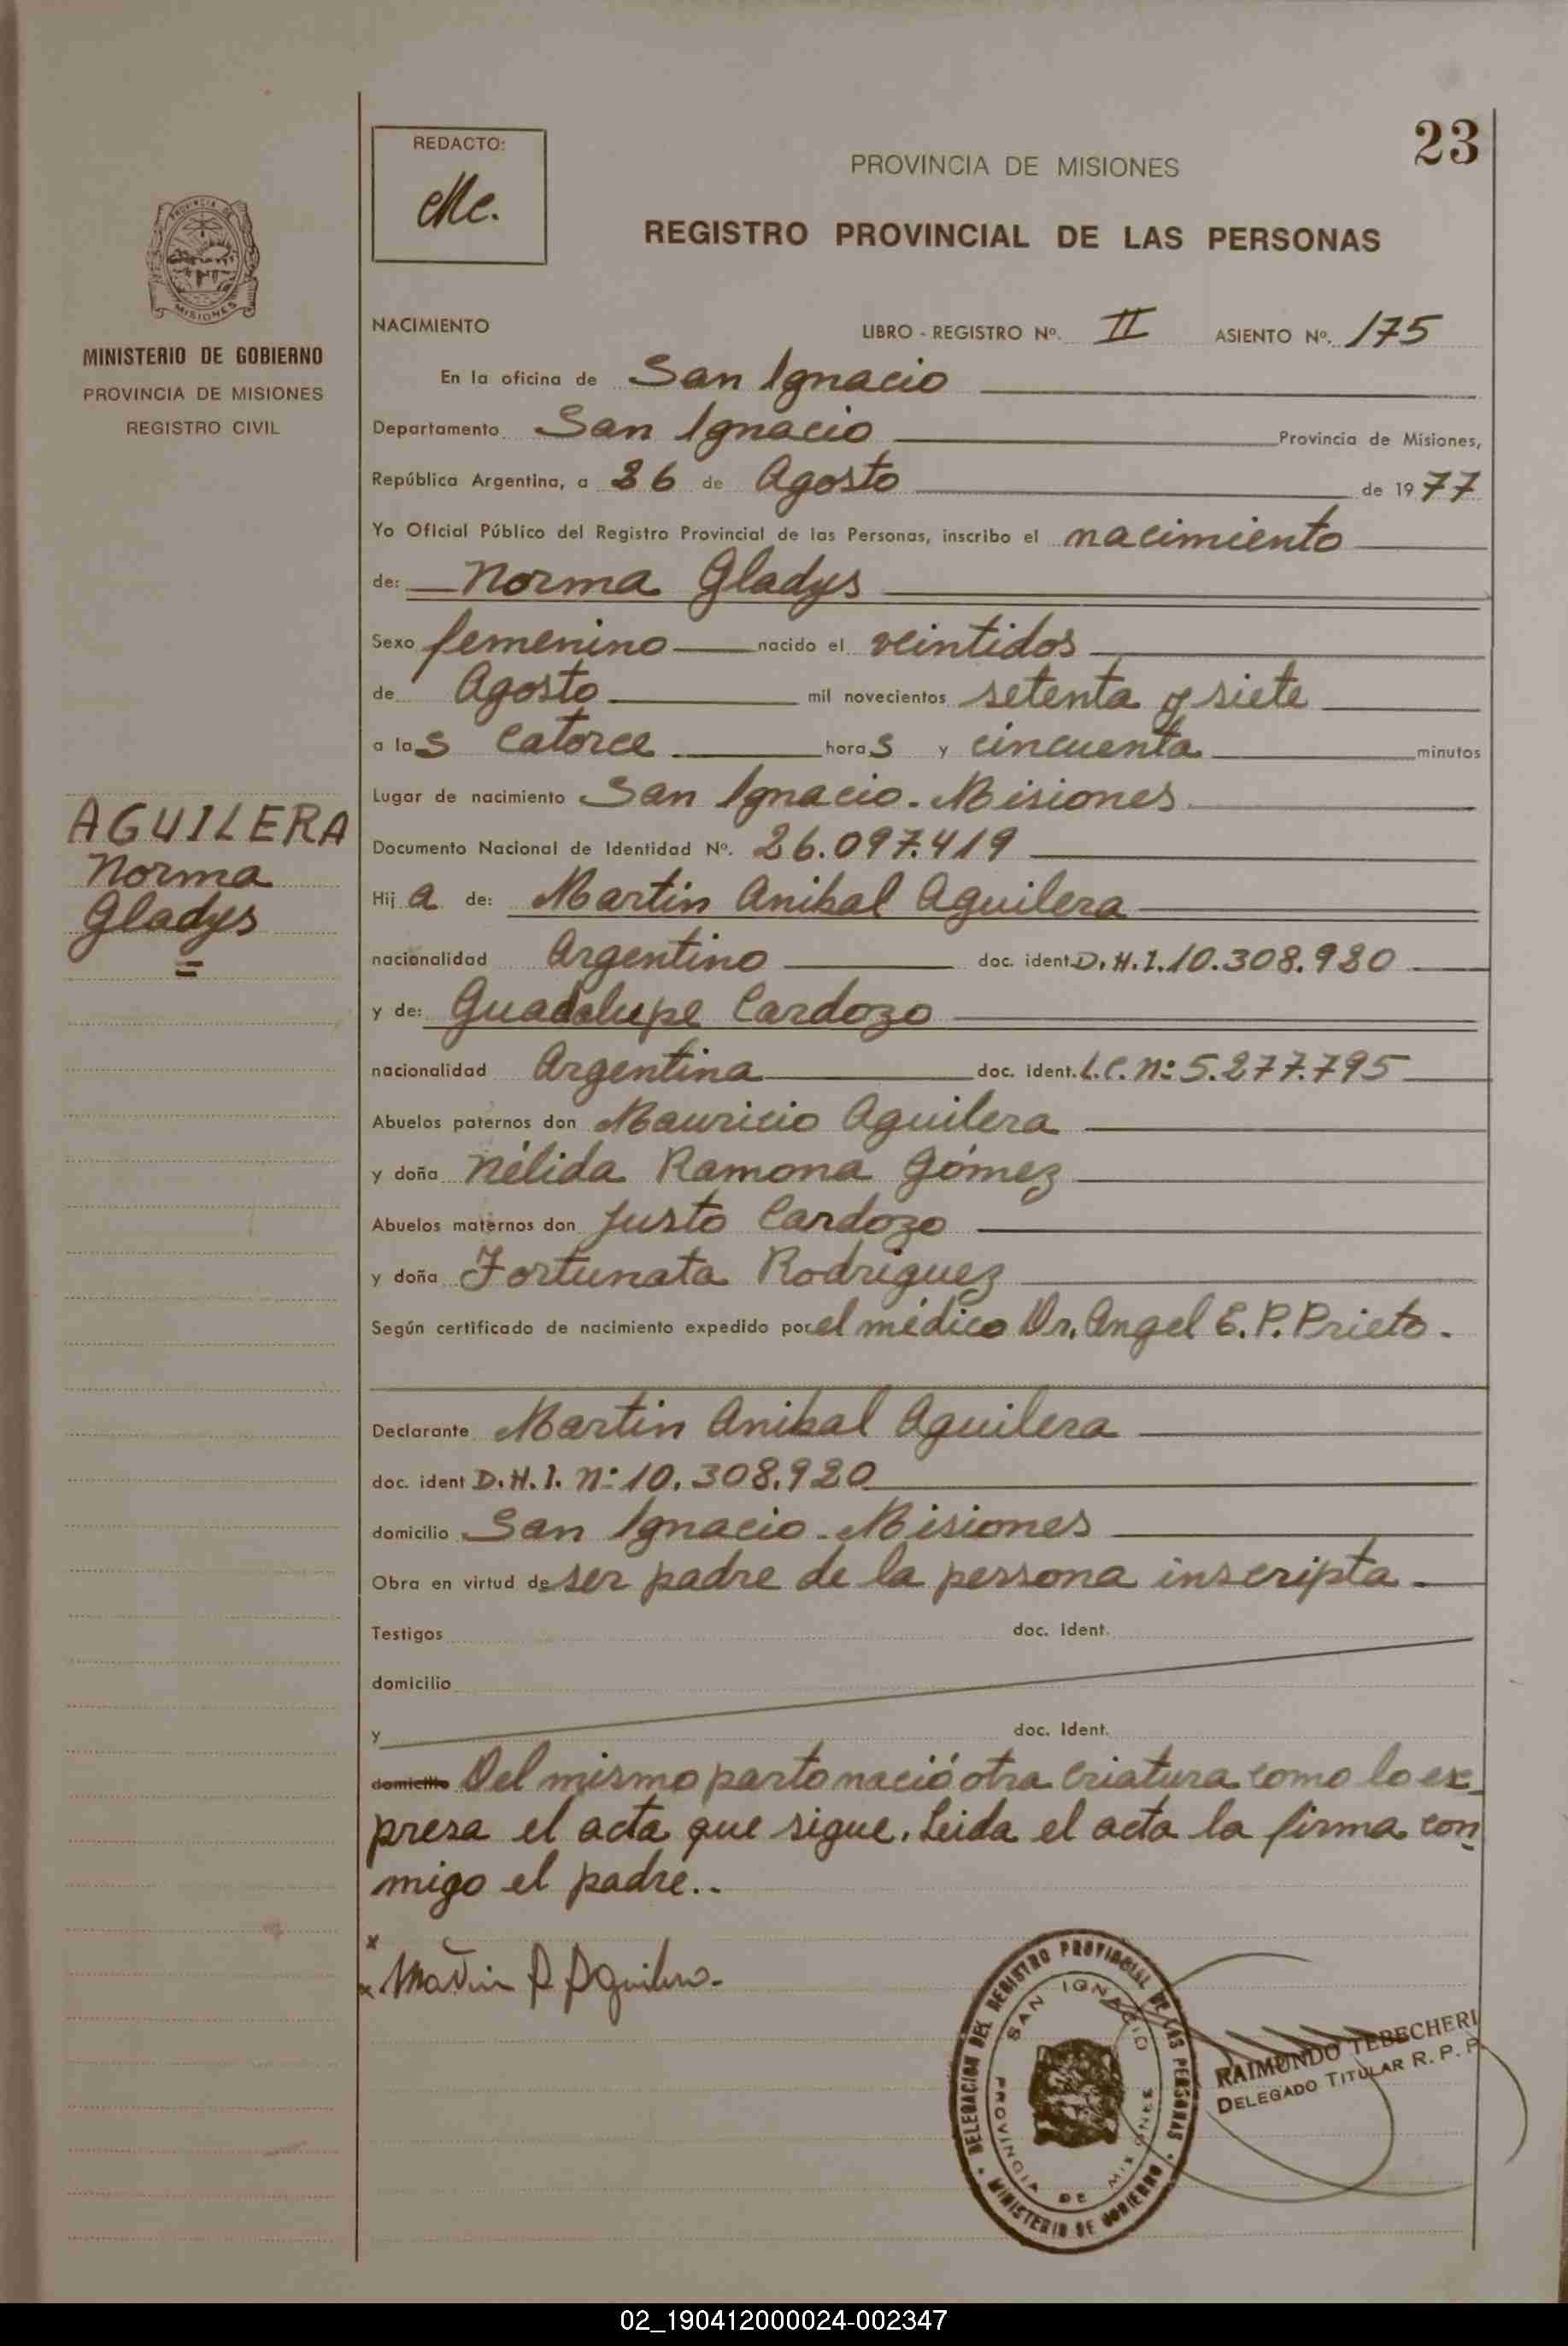 23
REDACTO:
PROVINCIA DE MISIONES
REGISTRO PROVINCIAL DE LAS PERSONAS
PROVINCIA DE
MISIONES
MINISTERIO DE GOBIERNO
PROVINCIA DE MISIONES
REGISTRO CIVIL
NACIMIENTO LIBRO - REGISTRO Nº. II ASIENTO Nº. 175
En la oficina de San Ignacio
Departamento San Ignacio Provincia de Misiones,
República Argentina, a 26 de Agosto de 1977
Yo Oficial Público del Registro Provincial de las Personas, inscribo el nacimiento
de: Norma Gladys
Sexo femenino nacido el veintidos
de Agosto mil novecientos setenta y siete
a las Catorce horas y cincuenta minutos
Lugar de nacimiento San Ignacio. Misiones
AGUILERA
Norma
Gladys
Documento Nacional de Identidad Nº. 26.097.419
Hija de: Martin Anibal Aguilera
nacionalidad Argentino doc. ident. D.N.I. 10.308.920
y de: Guadalupe Cardozo
nacionalidad Argentina doc. ident. L.C. Nº 5.277.795
Abuelos paternos don Mauricio Aguilera
y doña Nélida Ramona Gómez
Abuelos maternos don Justo Cardozo
y doña Fortunata Rodriguez
Según certificado de nacimiento expedido por el médico Dr. Angel E. P. Prieto.
Declarante Martin Anibal Aguilera
doc. ident D.N.I. Nº 10.308.920
domicilio San Ignacio. Misiones
Obra en virtud de ser padre de la persona inscripta.
Testigos doc. ident.
domicilio
y doc. ident.
domicilio Del mismo parto nació otra criatura como lo ex_
presa el acta que sigue. Leida el acta la firma con
migo el padre..
Martin A Aguilera.
DELEGACION DEL REGISTRO PROVINCIAL DE LAS PERSONAS
MINISTERIO DE GOBIERNO
SAN IGNACIO
PROVINCIA DE MISIONES
RAIMUNDO TEBECHERI
DELEGADO TITULAR R. P. P.
02_190412000024-002347